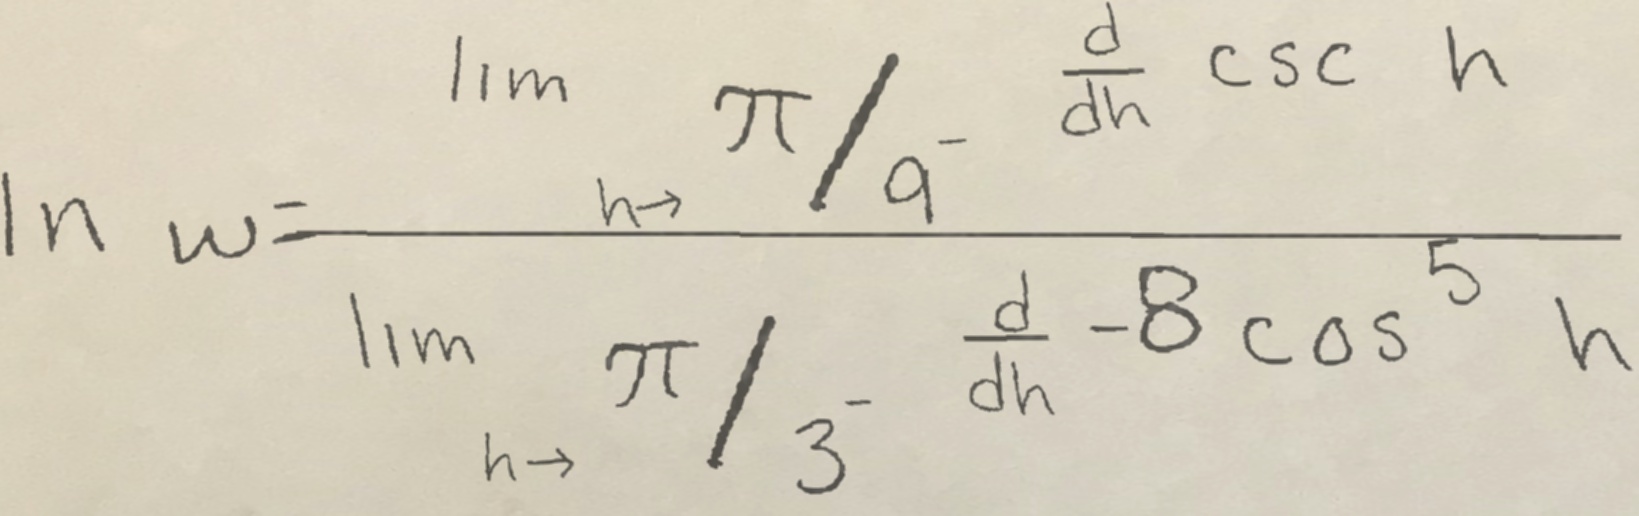 ln w = \frac{\lim_{h \to \pi/9^-} \frac{d}{dh} \csc h}{\lim_{h \to \pi/3^-} \frac{d}{dh} -8 \cos^5 h}